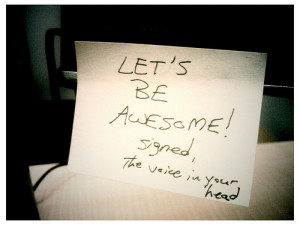 LET'S
BE
AWESOME!
signed,
the voice in your
head